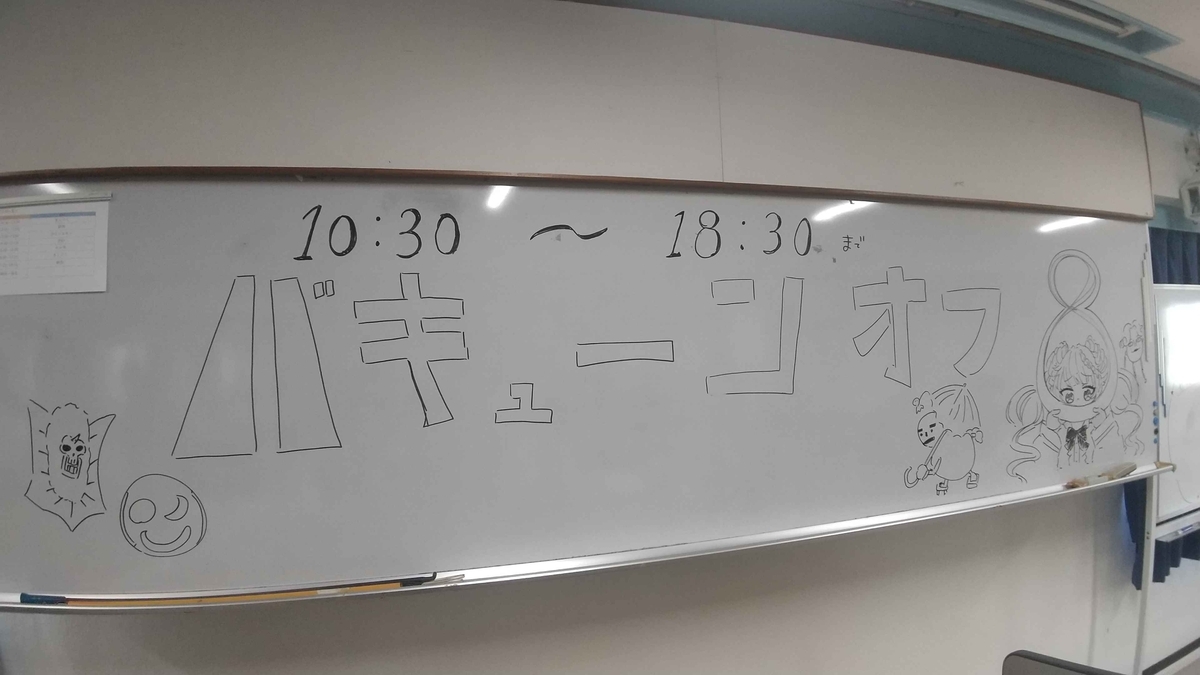 10:30 〜 18:30 まで
バキューンオフ